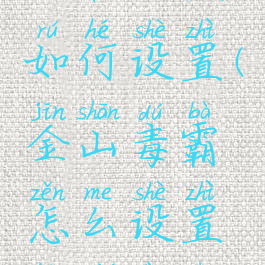 rú hé shè zhì
如何设置(
jīn shān dú bà
金山毒霸
zěn me shè zhì
怎么设置